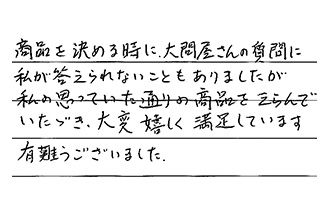 商品を決める時に、大問屋さんの質問に
私が答えられないこともありましたが
私の思っていた通りの商品をえらんで
いただき、大変嬉しく満足しています
有難うございました.